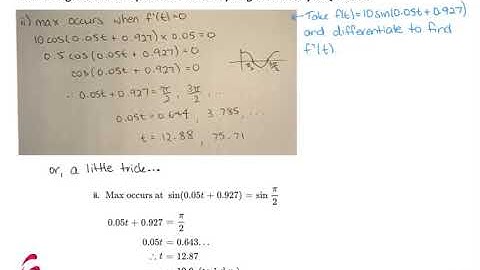 ii) max occurs when f'(t)=0
10cos(0.05t + 0.927) × 0.05 = 0
0.5 cos(0.05t + 0.927) = 0
cos(0.05t + 0.927) = 0
∴ 0.05t + 0.927 = π/2 , 3π/2 ...
0.05t = 0.644 , 3.785, ...
t = 12.88 , 75.71
Take f(t)=10sin(0.05t+0.927)
and differentiate to find
f'(t).
or, a little trick...
ii. Max occurs at sin(0.05t + 0.927) = sin π/2
0.05t + 0.927 = π/2
0.05t = 0.643...
∴ t = 12.87